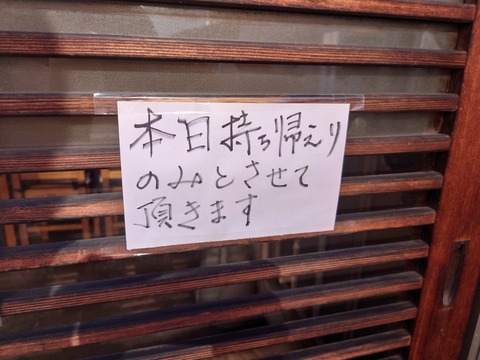 本日持ち帰えり
のみとさせて
頂きます